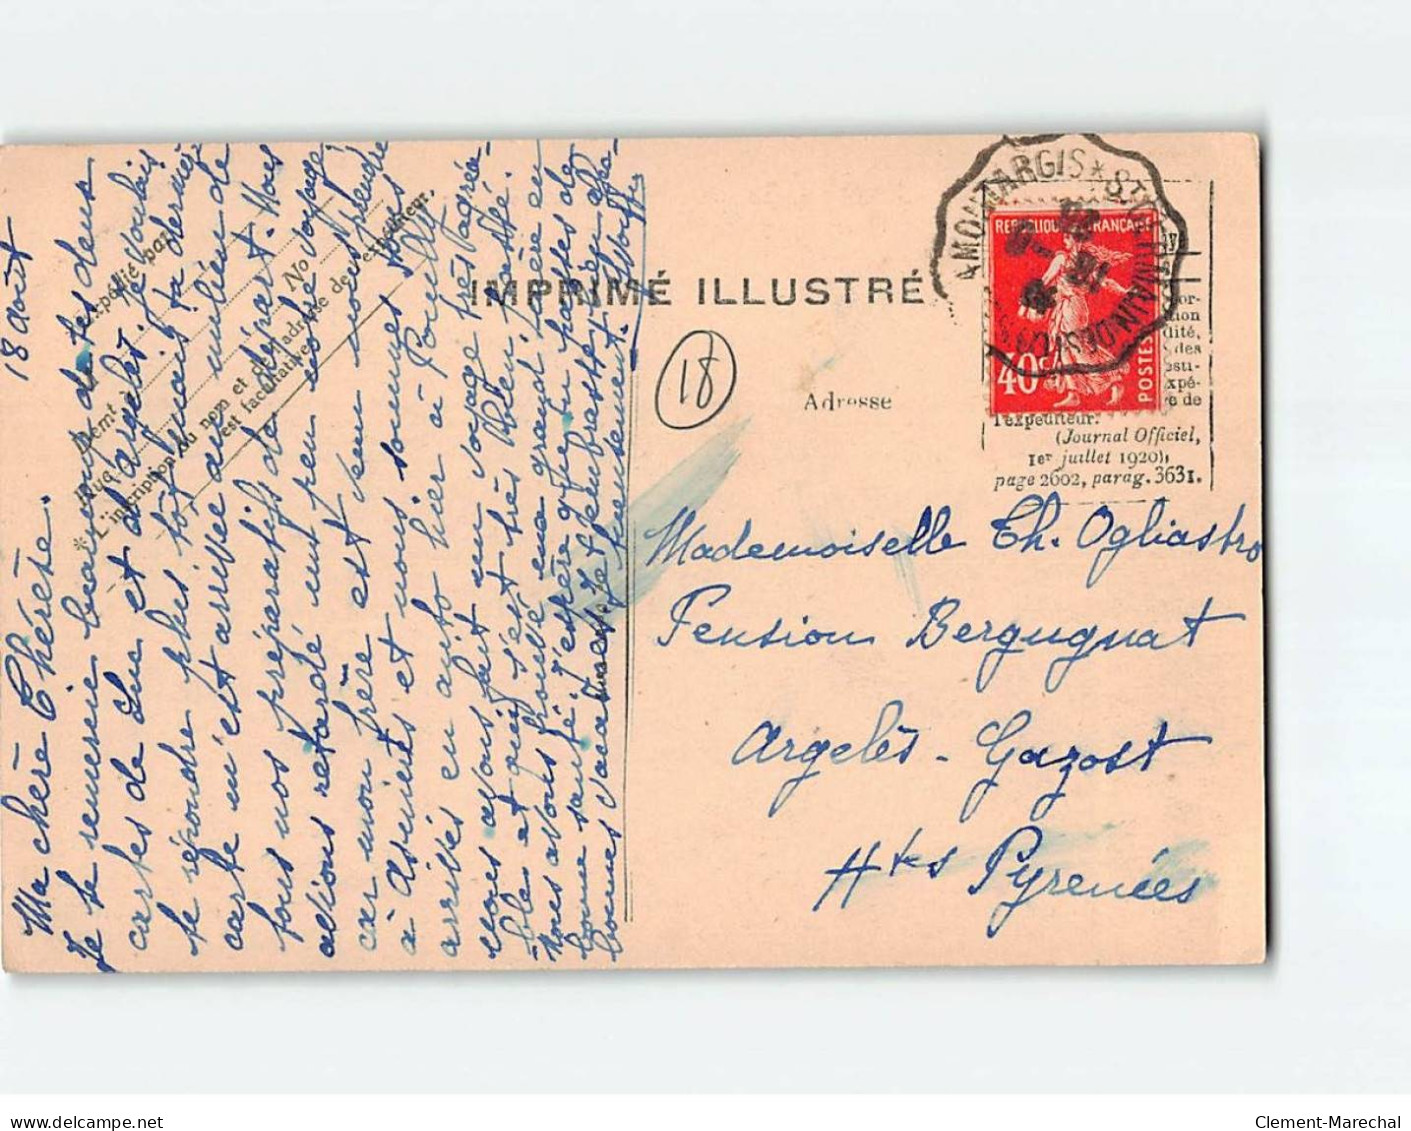 18 août
Ma chère Thérèse.
Je te remercie beaucoup de tes deux
cartes de Luc et d'Argelès. Je voulais
te répondre plus tôt, mais ta dernière
carte m'est arrivée au milieu de
tous nos préparatifs de départ. Nous
avions retardé un peu notre voyage
car mon frère est venu nous prendre
à Asnières et nous sommes tous
arrivés en auto hier à Pouilly.
nous avons fait un voyage très agréa-
ble et qui s'est très bien passé.
Nous avons trouvé ma grand'mère en
bonne santé. J'espère que tu passes de
bonnes vacances. Je t'embrasse bien affec-
tueusement.
Expédié par
Dem^t à
Rue
N°
* L'inscription du nom et de l'adresse de l'expéditeur
est facultative.
IMPRIMÉ ILLUSTRÉ
18
Adresse
MONTARGIS * ST GERMAIN DES FOSSÉS
RÉPUBLIQUE FRANÇAISE
40c
POSTES
l'expéditeur.
(Journal Officiel,
1er juillet 1920),
page 2602, parag. 3631.
Mademoiselle Th. Ogliastro
Pension Bergugnat
Argelès-Gazost
Htes Pyrénées
Clement-Marechal